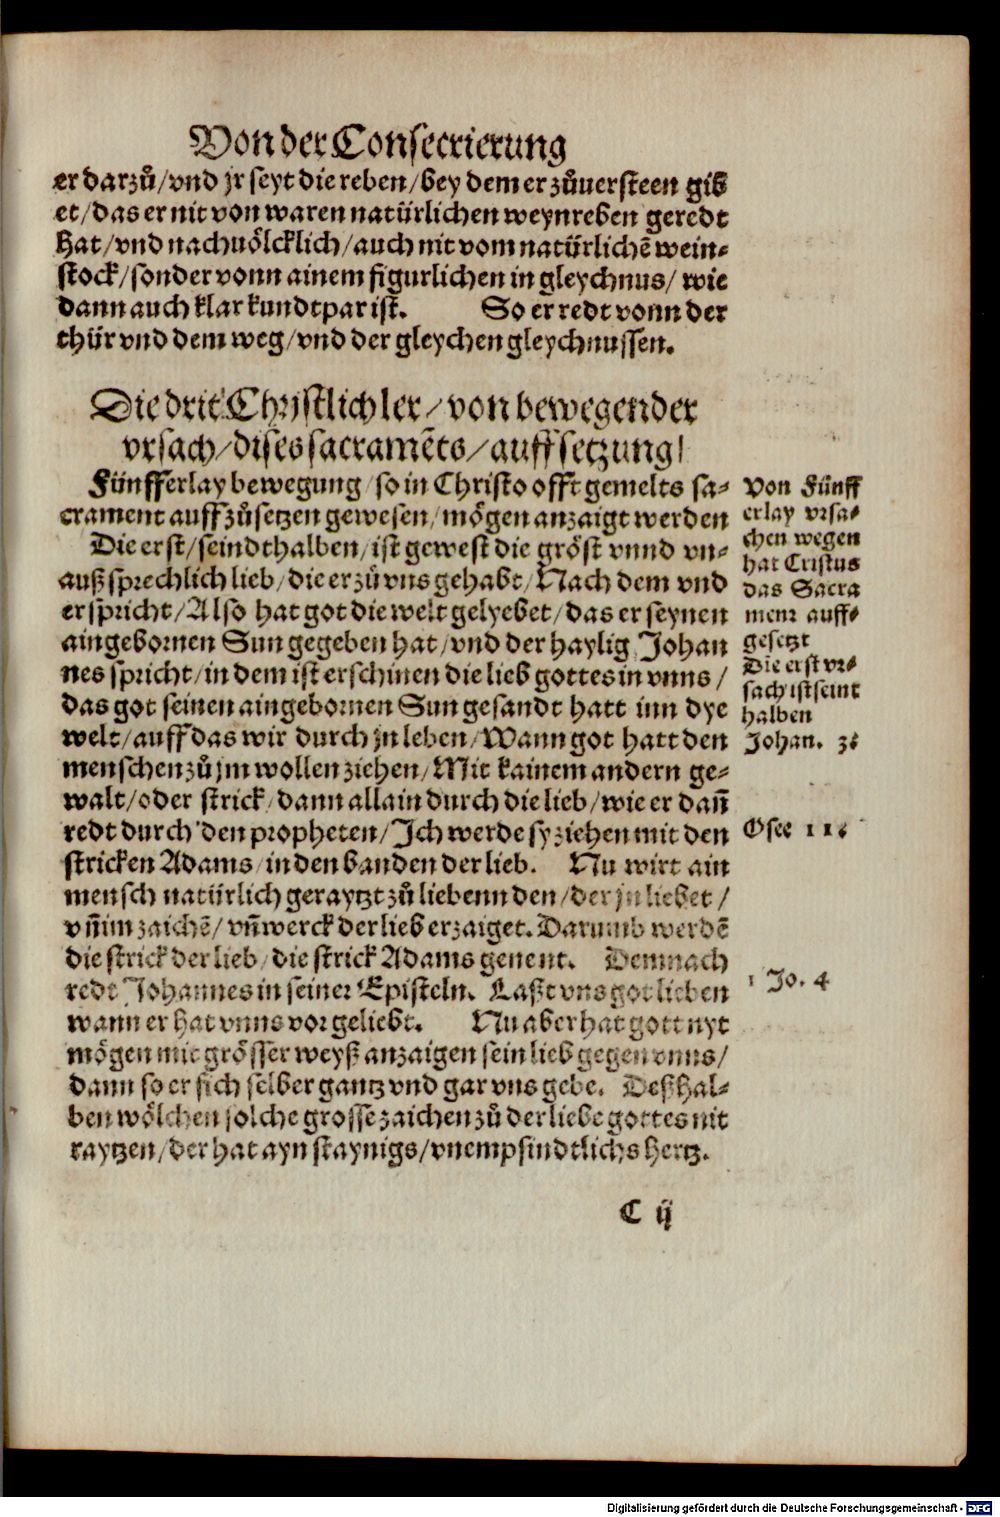 Von der Consecrierung
er darzů/vnd jr seyt die reben/bey dem er zůuersteen gib
et/das er nit von waren natürlichen weynreben geredt
hat/vnd nachuölcklich/auch nit vom natürlichē wein-
stock/sonder vonn ainem figurlichen in gleychnus/ wie
dann auch klar kundtpar ist. So er redt vonn der
thür vnd dem weg/vnd der gleychen gleychnussen.
Die drit Christlich ler/von bewegender
vrsach/dises sacramēts/auffsetzung/
Fünfferlay bewegung/so in Christo offt gemelts sa-
crament auffzůsetzen gewesen/mögen anzaigt werden
Die erst/seindthalben/ist gewest die gröst vnnd vn-
außsprechlich lieb/die er zů vns gehabt/Nach dem vnd
er spricht/Also hat got die welt gelyebet/das er seynen
aingebornen Sun gegeben hat/vnd der haylig Johan
nes spricht/in dem ist erschinen die lieb gottes in vnns/
das got seinen aingebornen Sun gesandt hatt inn dye
welt/auff das wir durch jn leben/Wann got hatt den
menschen zů jm wollen ziehen/Mit kainem andern ge-
walt/oder strick/dann allain durch die lieb/wie er dañ
redt durch den propheten/Ich werde sy ziehen mit den
stricken Adams/in den banden der lieb. Nu wirt ain
mensch natürlich geraytzt zů liebenn den/der jn liebet/
vñ im zaichē/vñ werck der lieb erzaiget. Darumb werdē
die strick der lieb/die strick Adams genent. Demnach
redt Johannes in seiner Episteln. Laßt vns got lieben
wann er hat vnns vor geliebt. Nu aber hat gott nyt
mögen mit grösser weyß anzaigen sein lieb gegen vnns/
dann so er sich selber gantz vnd gar vns gebe. Deßhal-
ben wölchen solche grosse zaichen zů der liebe gottes nit
raytzen/der hat ayn staynigs/vnempfindtlichs hertz.
C ij
Von Fünff
erlay vrsa-
chen wegen
hat Cristus
das Sacra
ment auff-
gesetzt
Die erst vr-
sach ist seint
halben
Johan. 3.
Osee 11.
1 Jo. 4
Digitalisierung gefördert durch die Deutsche Forschungsgemeinschaft - DFG